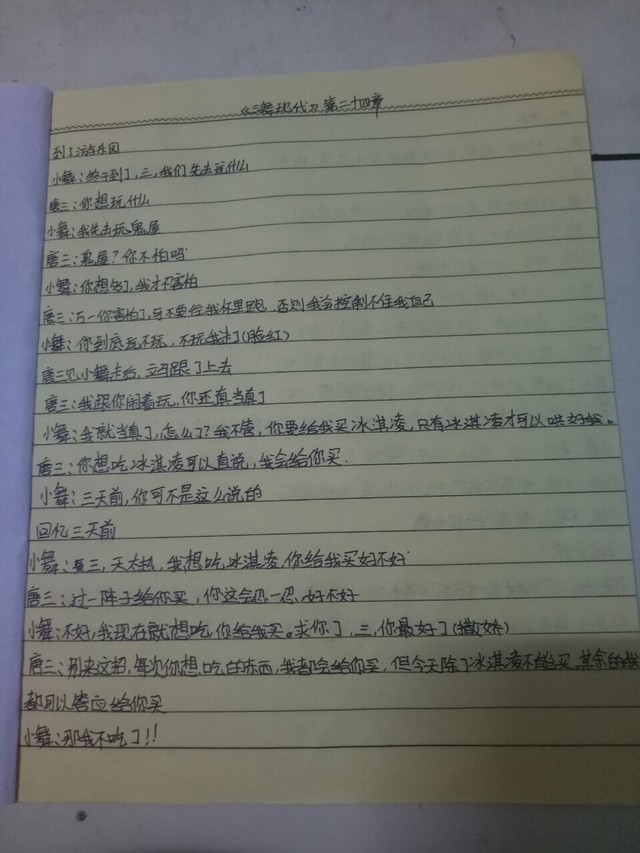 《三舞现代》第二十四章
到了游乐园
小舞:终于到了,三,我们先去玩什么
唐三:你想玩什么
小舞:我先去玩鬼屋
唐三:鬼屋?你不怕吗
小舞:你想多了,我才不害怕
唐三:万一你害怕了,可不要往我怀里跑,否则我会控制不住我自己
小舞:你到底玩不玩,不玩我走了(脸红)
唐三见小舞走后,立马跟了上去
唐三:我跟你闹着玩,你还真当真了
小舞:我就当真了,怎么了?我不管,你要给我买冰淇凌,只有冰淇凌才可以哄好我。
唐三:你想吃冰淇凌可以直说,我会给你买.
小舞:三天前,你可不是这么说的
回忆三天前
小舞:三,天太热,我想吃冰淇凌,你给我买好不好
唐三:过一阵子给你买,你这会忍一忍,好不好
小舞:不好,我现在就想吃,你给我买。求你了,三,你最好了(撒娇)
唐三:别来这招,每次你想吃的东西,我都会给你买,但今天除了冰淇凌不能买,其余的我
都可以答应给你买
小舞:那我不吃了!!